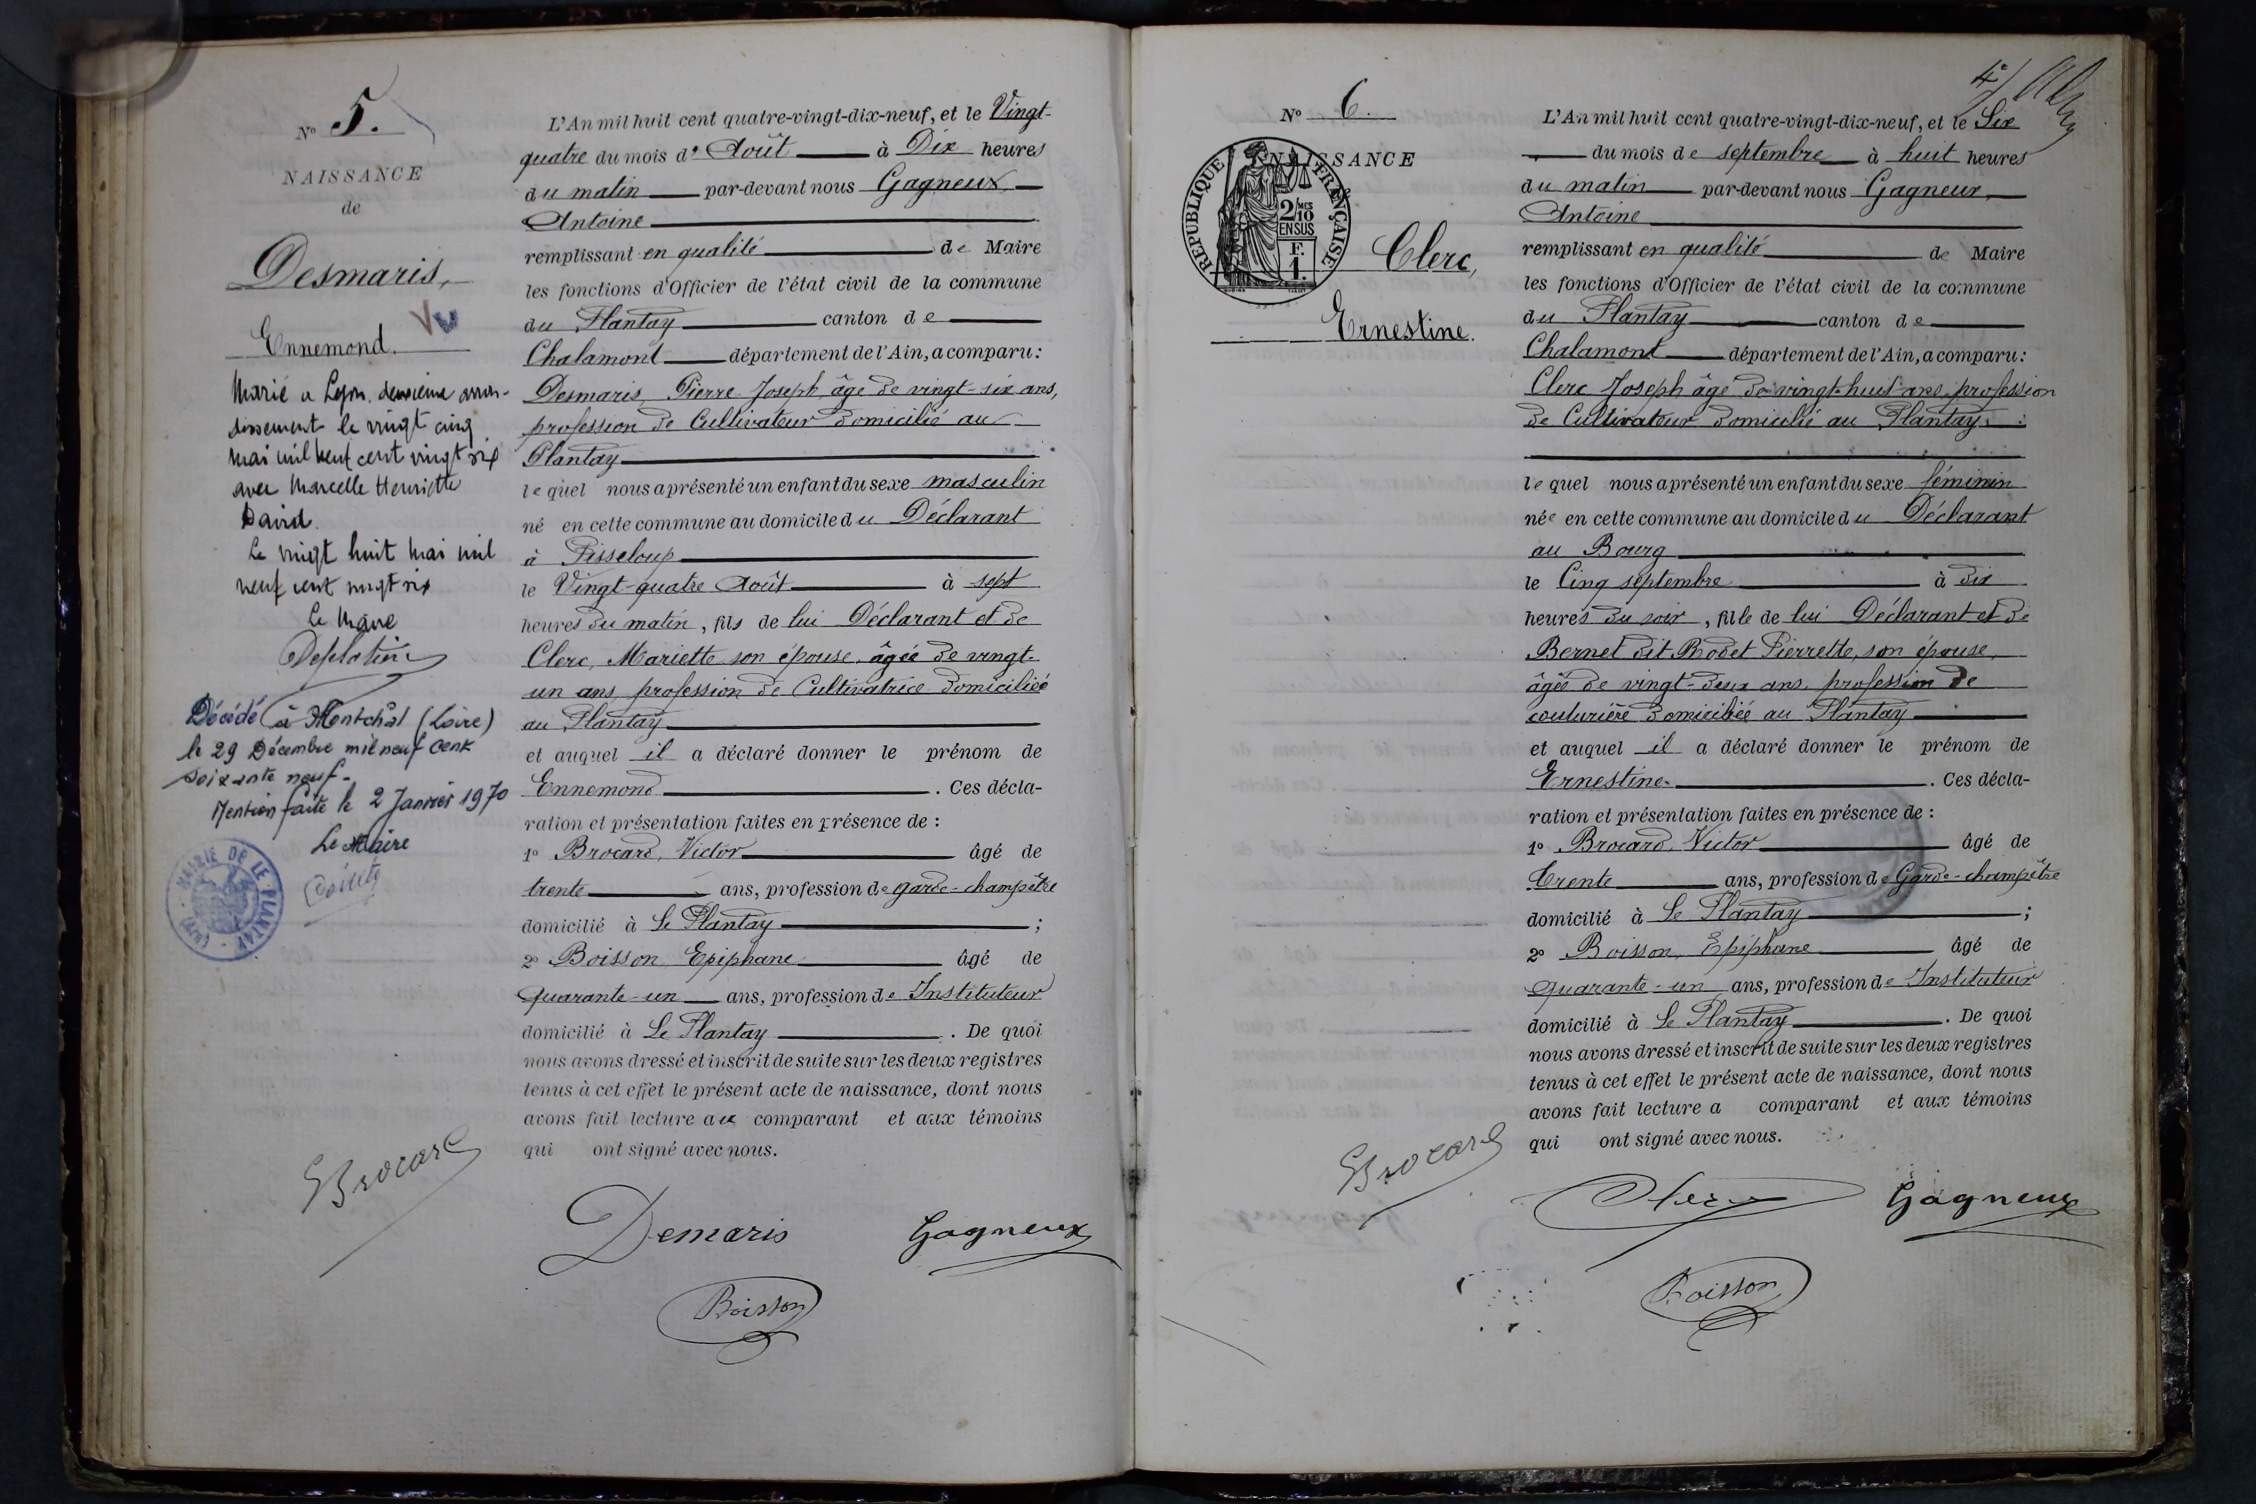 N° 5.
NAISSANCE
de
Desmaris,
Ennemond.
Marié à Lyon, deuxième arron-
dissement le vingt cinq
mai mil neuf cent vingt six
avec Marcelle Henriette
David.
Le vingt huit mai mil
neuf cent vingt six
Le Maire
Décédé à Montchal (Loire)
le 29 Décembre mil neuf cent
soixante neuf.
Mention faite le 2 Janvier 1970
Le Maire
MAIRIE DE LE PLANTAY (AIN)
L'An mil huit cent quatre-vingt-dix-neuf, et le Vingt-
quatre du mois d' Août à Dix heures
du matin par-devant nous Gagneux,
Antoine
remplissant en qualité de Maire
les fonctions d'Officier de l'état civil de la commune
du Plantay canton de
Chalamont département de l'Ain, a comparu :
Desmaris, Pierre Joseph, âgé de vingt-six ans,
profession de Cultivateur domicilié au
Plantay
lequel nous a présenté un enfant du sexe masculin
né en cette commune au domicile du Déclarant
à Pisseloup
le Vingt-quatre Août à sept
heures du matin, fils de lui Déclarant et de
Clerc, Mariette son épouse, âgée de vingt-
un ans, profession de Cultivatrice domiciliée
au Plantay
et auquel il a déclaré donner le prénom de
Ennemond. Ces décla-
ration et présentation faites en présence de :
1° Brocard, Victor âgé de
trente ans, profession de garde-champêtre
domicilié à Le Plantay ;
2° Boisson Epiphane âgé de
quarante-un ans, profession de Instituteur
domicilié à Le Plantay. De quoi
nous avons dressé et inscrit de suite sur les deux registres
tenus à cet effet le présent acte de naissance, dont nous
avons fait lecture au comparant et aux témoins
qui ont signé avec nous.
Brocard
Demaris
Gagneux
Boisson
4e
N° 6.
NAISSANCE
RÉPUBLIQUE FRANÇAISE
2/10 MES
EN SUS
F.
1.
Clerc,
Ernestine.
L'An mil huit cent quatre-vingt-dix-neuf, et le Six
du mois de septembre à huit heures
du matin par-devant nous Gagneux,
Antoine
remplissant en qualité de Maire
les fonctions d'Officier de l'état civil de la commune
du Plantay canton de
Chalamont département de l'Ain, a comparu :
Clerc Joseph âgé de vingt-huit ans, profession
de Cultivateur domicilié au Plantay
lequel nous a présenté un enfant du sexe féminin
née en cette commune au domicile du Déclarant
au Bourg
le Cinq septembre à dix
heures du soir, fille de lui Déclarant et de
Bernet dit Rodet Pierrette, son épouse,
âgée de vingt-deux ans, profession de
couturière domiciliée au Plantay
et auquel il a déclaré donner le prénom de
Ernestine. Ces décla-
ration et présentation faites en présence de :
1° Brocard, Victor âgé de
Trente ans, profession de Garde-champêtre
domicilié à Le Plantay ;
2° Boisson, Epiphane âgé de
quarante-un ans, profession de Instituteur
domicilié à Le Plantay. De quoi
nous avons dressé et inscrit de suite sur les deux registres
tenus à cet effet le présent acte de naissance, dont nous
avons fait lecture a comparant et aux témoins
qui ont signé avec nous.
Brocard
Clerc
Gagneux
Boisson